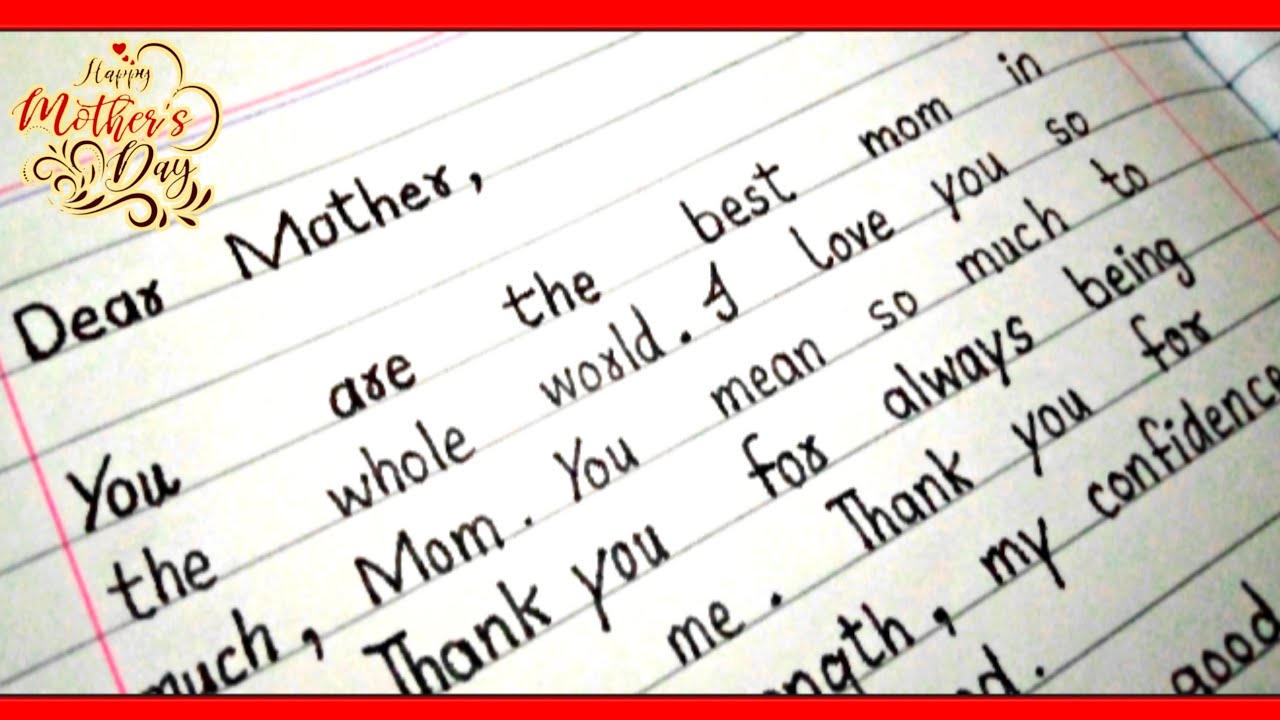 Happy
Mother's
Day
Dear Mother,
You are the best mom in
the whole world. I love you so
much, Mom. You mean so much to
Thank you for always being
me. Thank you for
my confidence
good